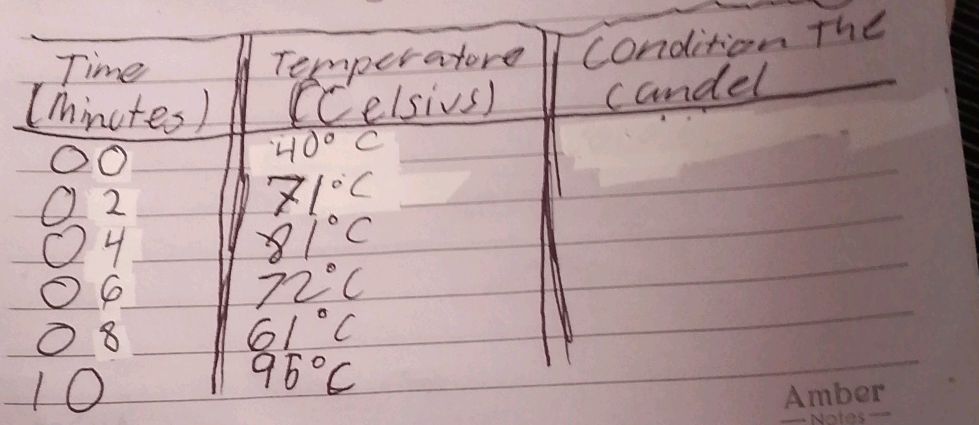 Time Temperature Condition The
(Minutes) (Celsius) candel
00 40°C
02 71°C
04 81°C
06 72°C
08 61°C
10 95°C
Amber
Notes